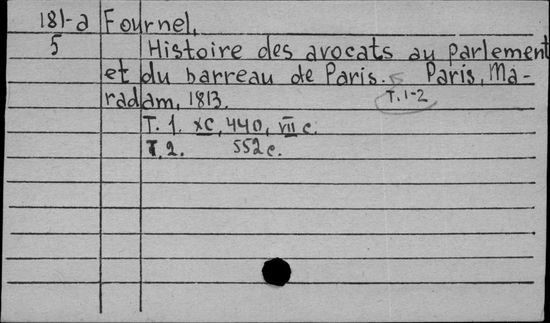 181-a Fournel,
5 Histoire des avocats au parlement
et du barreau de Paris. Paris, Ma-
T. 1-2
radam, 1813.
T. 1. XC, 440, VII c.
T. 2. 552 c.